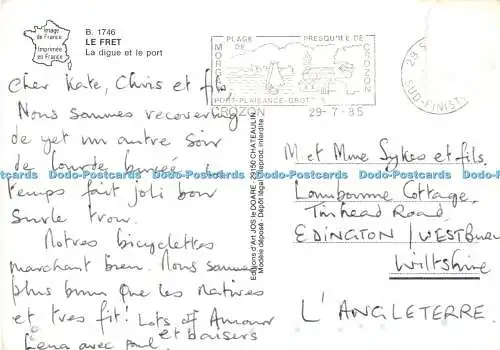 Image
de France
Imprimée
en France
B. 1746
LE FRET
La digue et le port
PLAGE DE
MORGAT
PRESQU'ILE DE
CROZON
PORT-PLAISANCE-GROTTES
CROZON 29-7-85
SUD-FINIST
Cher Kate, Chris et fils,
Nous sommes recovering
de yet un autre soir
de lourde
temps fait joli bon
sur le trou.
Notres bicyclettes
marchant bien. Nous sommes
plus brun que les natives
et tres fit! Lots of Amour
et baisers
Lena avec Paul
Editions d'Art JOS le DOARE - 29150 CHATEAULIN
Modèle déposé - Dépôt légal - Reprod. interdite
M et Mme Sykes et fils,
Lambourne Cottage,
Tinhead Road,
EDINGTON / WESTBURY
Wiltshire
L'ANGLETERRE.
Dodo-Postcards Dodo-Postcards Dodo-Postcards Dodo-Postcards Dodo-Postcards